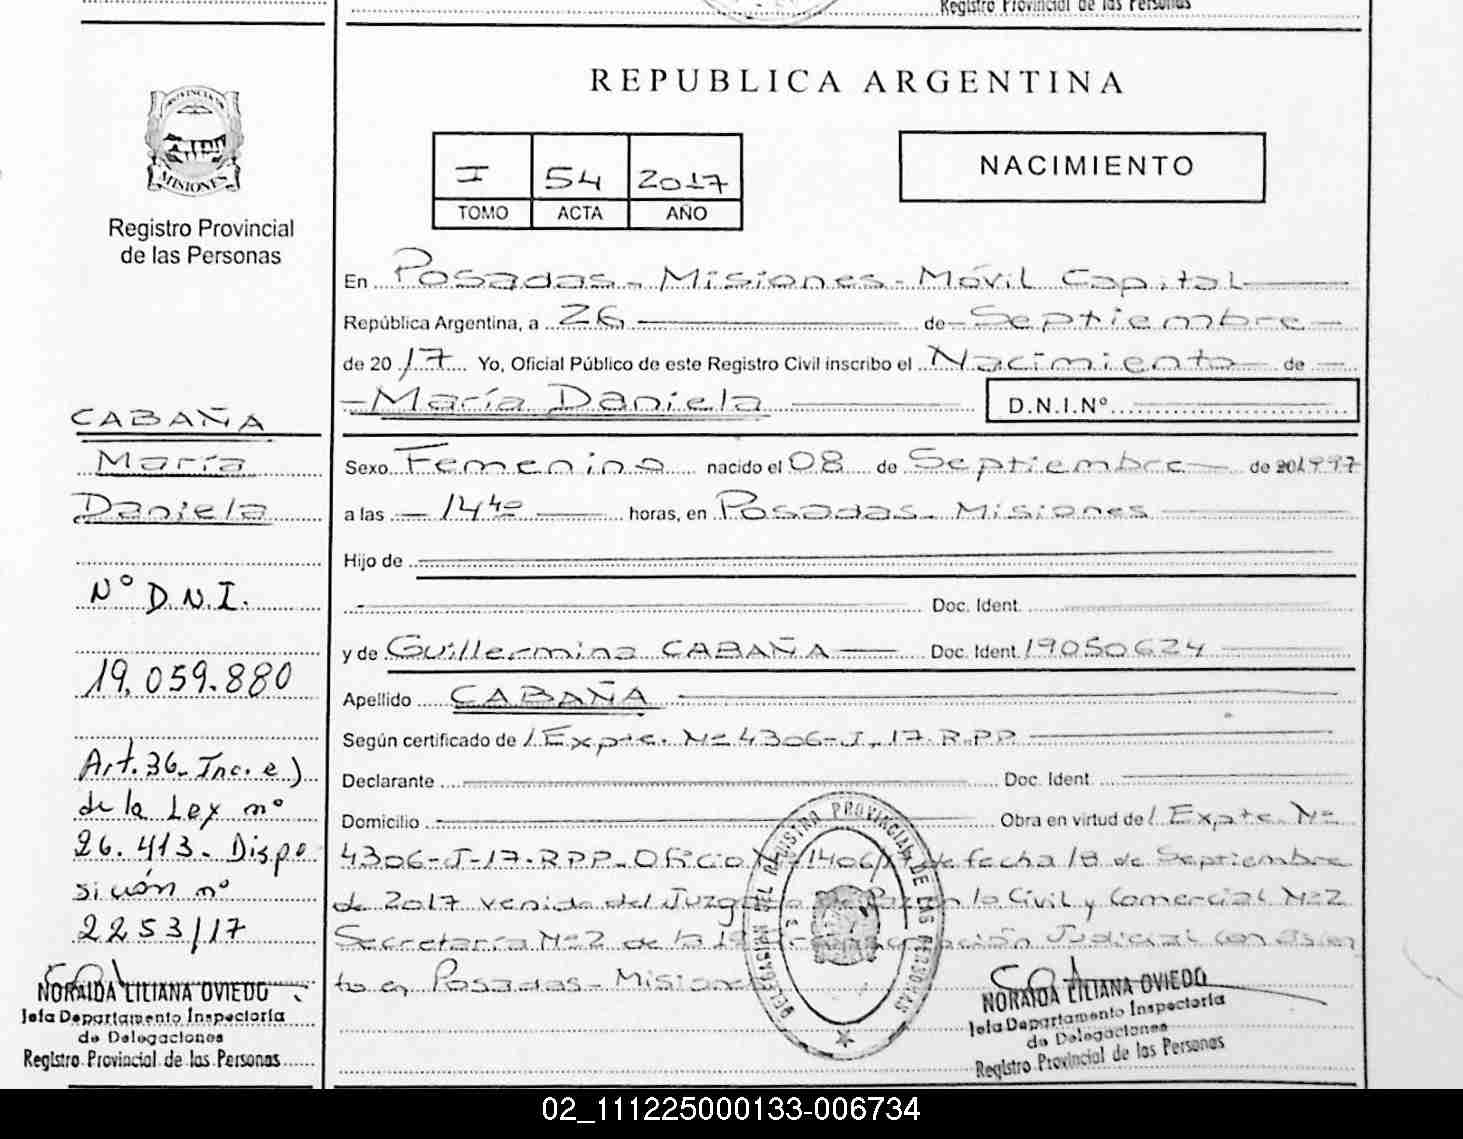 Registro Provincial de las Personas
REPUBLICA ARGENTINA
PROVINCIA DE
MISIONES
Registro Provincial
de las Personas
I 54 2017
TOMO ACTA AÑO
NACIMIENTO
En Posadas - Misiones - Móvil Capital
República Argentina, a 26 de Septiembre
de 2017 Yo, Oficial Público de este Registro Civil inscribo el Nacimiento de
María Daniela D.N.I.Nº
Sexo Femenino nacido el 08 de Septiembre de 1997
a las 14 40 horas, en Posadas - Misiones
Hijo de
Doc. Ident.
y de Guillermina CABAÑA Doc. Ident. 19050624
Apellido CABAÑA
Según certificado de / Expte. Nº 4306-J-17-R.PP.
Declarante Doc. Ident.
Domicilio Obra en virtud de / Expte. Nº
4306-J-17-R.PP. Oficio Nº 1406/ de fecha 18 de Septiembre
de 2017 venido del Juzgado de Paz en lo Civil y Comercial Nº2
Secretaría Nº2 de la 1º Circunscripción Judicial con asien
to en Posadas - Misiones
DELEGACION DEL REGISTRO PROVINCIAL DE LAS PERSONAS
NORAIDA LILIANA OVIEDO
Jefa Departamento Inspectoría
de Delegaciones
Registro Provincial de las Personas
CABAÑA
María
Daniela
Nº D.N.I.
19.059.880
Art. 36 - Inc. e)
de la Ley nº
26.413 - Dispo
sición nº
2253/17
NORAIDA LILIANA OVIEDO
Jefa Departamento Inspectoría
de Delegaciones
Registro Provincial de las Personas
02_111225000133-006734